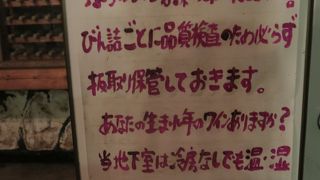 びん詰ごとに品質検査のため必らず
抜取り保管しておきます。
あなたの生まれ年のワインありますか?
当地下室は冷房なしでも温・湿